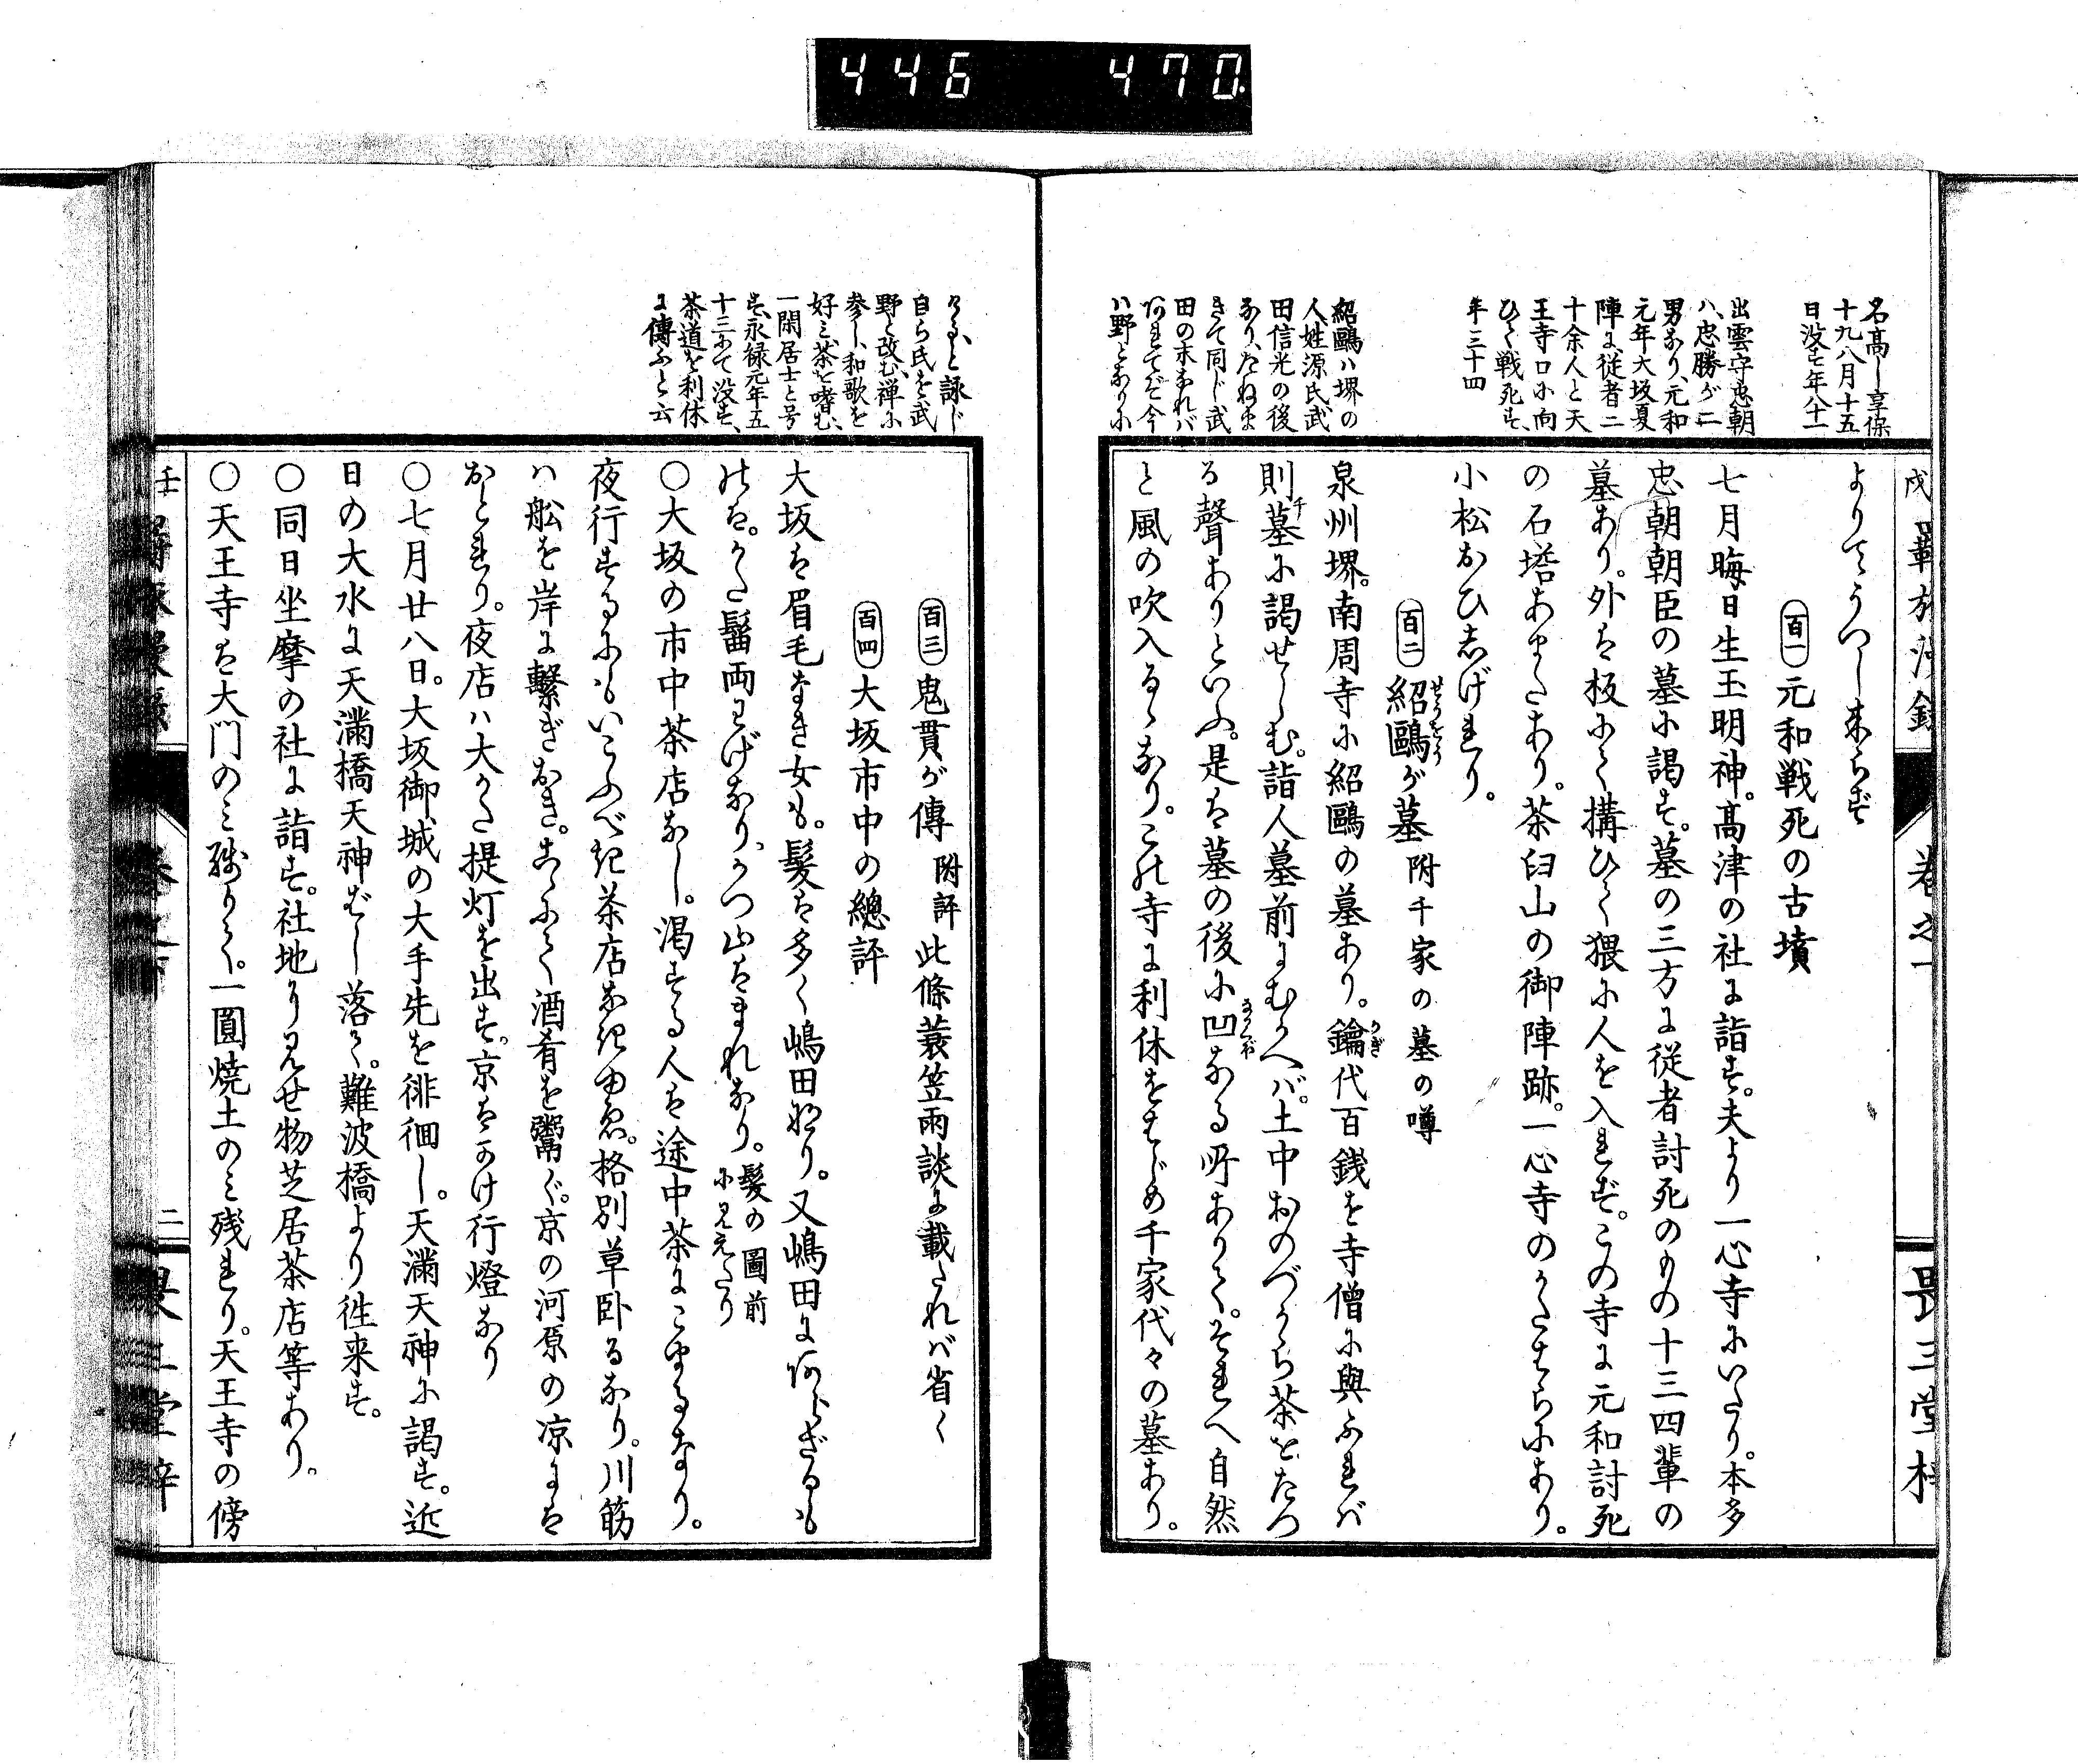 446 470
名高し享保
十九八月十五
日没す年八十一
出雲守忠朝
ハ、忠勝が二
男なり、元和
元年大坂夏
陣に従者二
十余人と天
王寺口に向
ひて戦死す、
年三十四
紹鷗ハ堺の
人、姓源氏、武
田信光の後
なり、たねま
きて同じ武
田の末なれバ
あれてぞ今
ハ野となりに
よりてうつし来らず
百一 元和戦死の古墳
七月晦日生玉明神。高津の社に詣す。夫より一心寺にいたり。本多
忠朝朝臣の墓に謁す。墓の三方に従者討死のもの十三四輩の
墓あり。外は板にて搆ひて猥に人を入れず。この寺に元和討死
の石塔あまたあり。茶臼山の御陣跡。一心寺のかたはらにあり。
小松おひしげれり。
百二 紹鷗が墓 附千家の墓の噂
泉州堺。南周寺に紹鷗の墓あり。鑰代百銭を寺僧に與ふれバ
則墓に謁せしむ。詣人墓前にむかへバ。土中おのづから茶をたつ
る聲ありといふ。是は墓の後に凹なる所ありて。それへ自然
と風の吹入るゝなり。この寺に利休をはじめ千家代々の墓あり。
戌 羇旅漫録 巻之一 畏三堂梓
けると詠じ
自ら氏を武
野と改む、禅に
参し、和歌を
好ミ、茶を嗜む、
一閑居士と号
す、永禄元年五
十三にて没す、
茶道を利休
に傳ふと云
百三 鬼貫が傳 附評 此條蓑笠雨談に載たれバ省く
百四 大坂市中の總評
大坂は眉毛なき女も。髪は多く嶋田なり。又嶋田にあらざるも
のは。かた髷両わげなり、かつ山はまれなり。髪の圖前にみえたり
○大坂の市中茶店なし。渇する人は途中茶にこまるなり。
夜行するにもいこふべき茶店なきゆゑ。格別草卧るなり。川筋
ハ舩を岸に繋ぎおき。こゝにて酒肴を鬻ぐ。京の河原の凉には
おとれり。夜店ハ大かた提灯を出す。京はかけ行燈なり
○七月廿八日。大坂御城の大手先を徘徊し。天滿天神に謁す。近
日の大水に天滿橋天神ばし落て。難波橋より徃来す。
○同日坐摩の社に詣す。社地にみせ物芝居茶店等あり。
○天王寺は大門のミ殘りて。一圓焼土のミ残れり。天王寺の傍